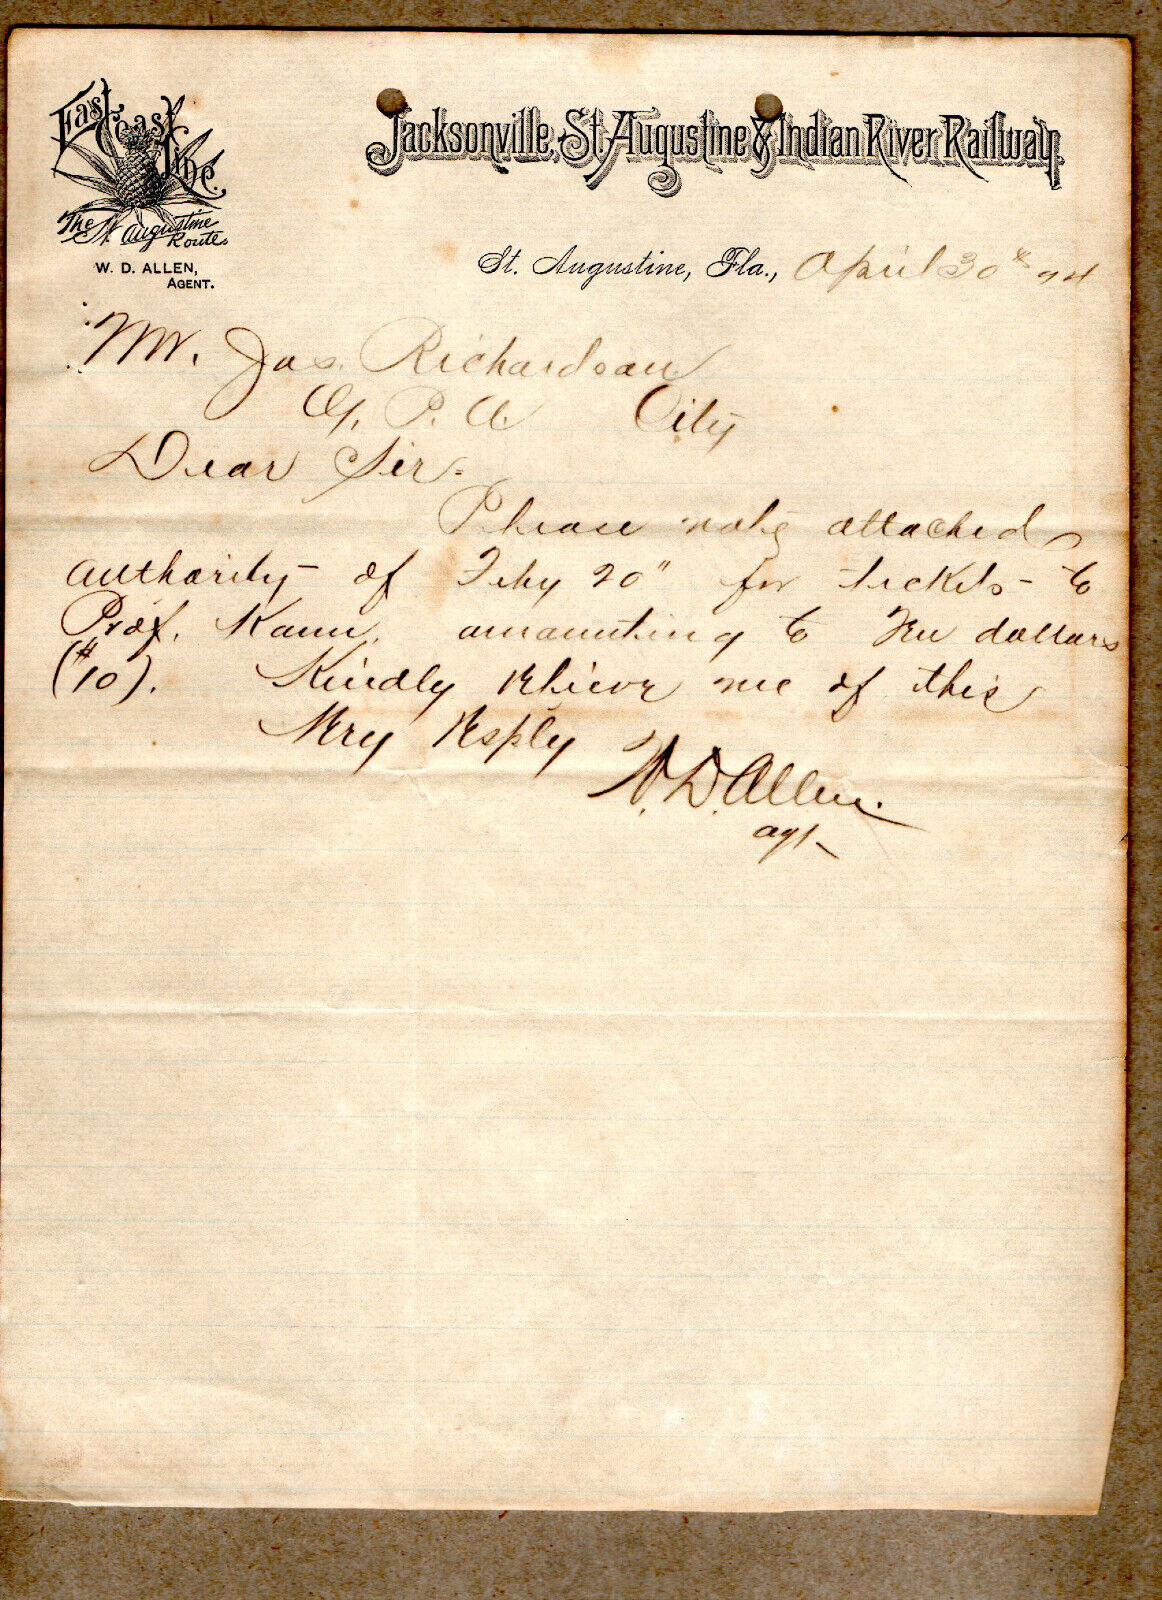 East Coast Line.
The St. Augustine
Route
W. D. ALLEN,
AGENT.
Jacksonville, St. Augustine & Indian River Railway.
St. Augustine, Fla., April 30th 94
Mr. Jas. Richardson
G. P. A City
Dear Sir.
Please note attached
authority of Feby 20" for tickets to
Prof. amounting to Ten dollars
($10). Kindly relieve me of this
Very Resply
W. D. Allen.
agt